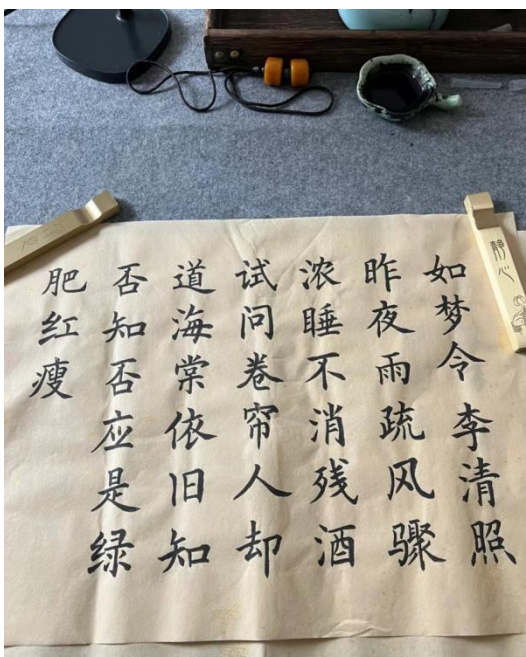 如梦令 李清照
昨夜雨疏风骤
浓睡不消残酒
试问卷帘人却
道海棠依旧知
否知否应是绿
肥红瘦
静心